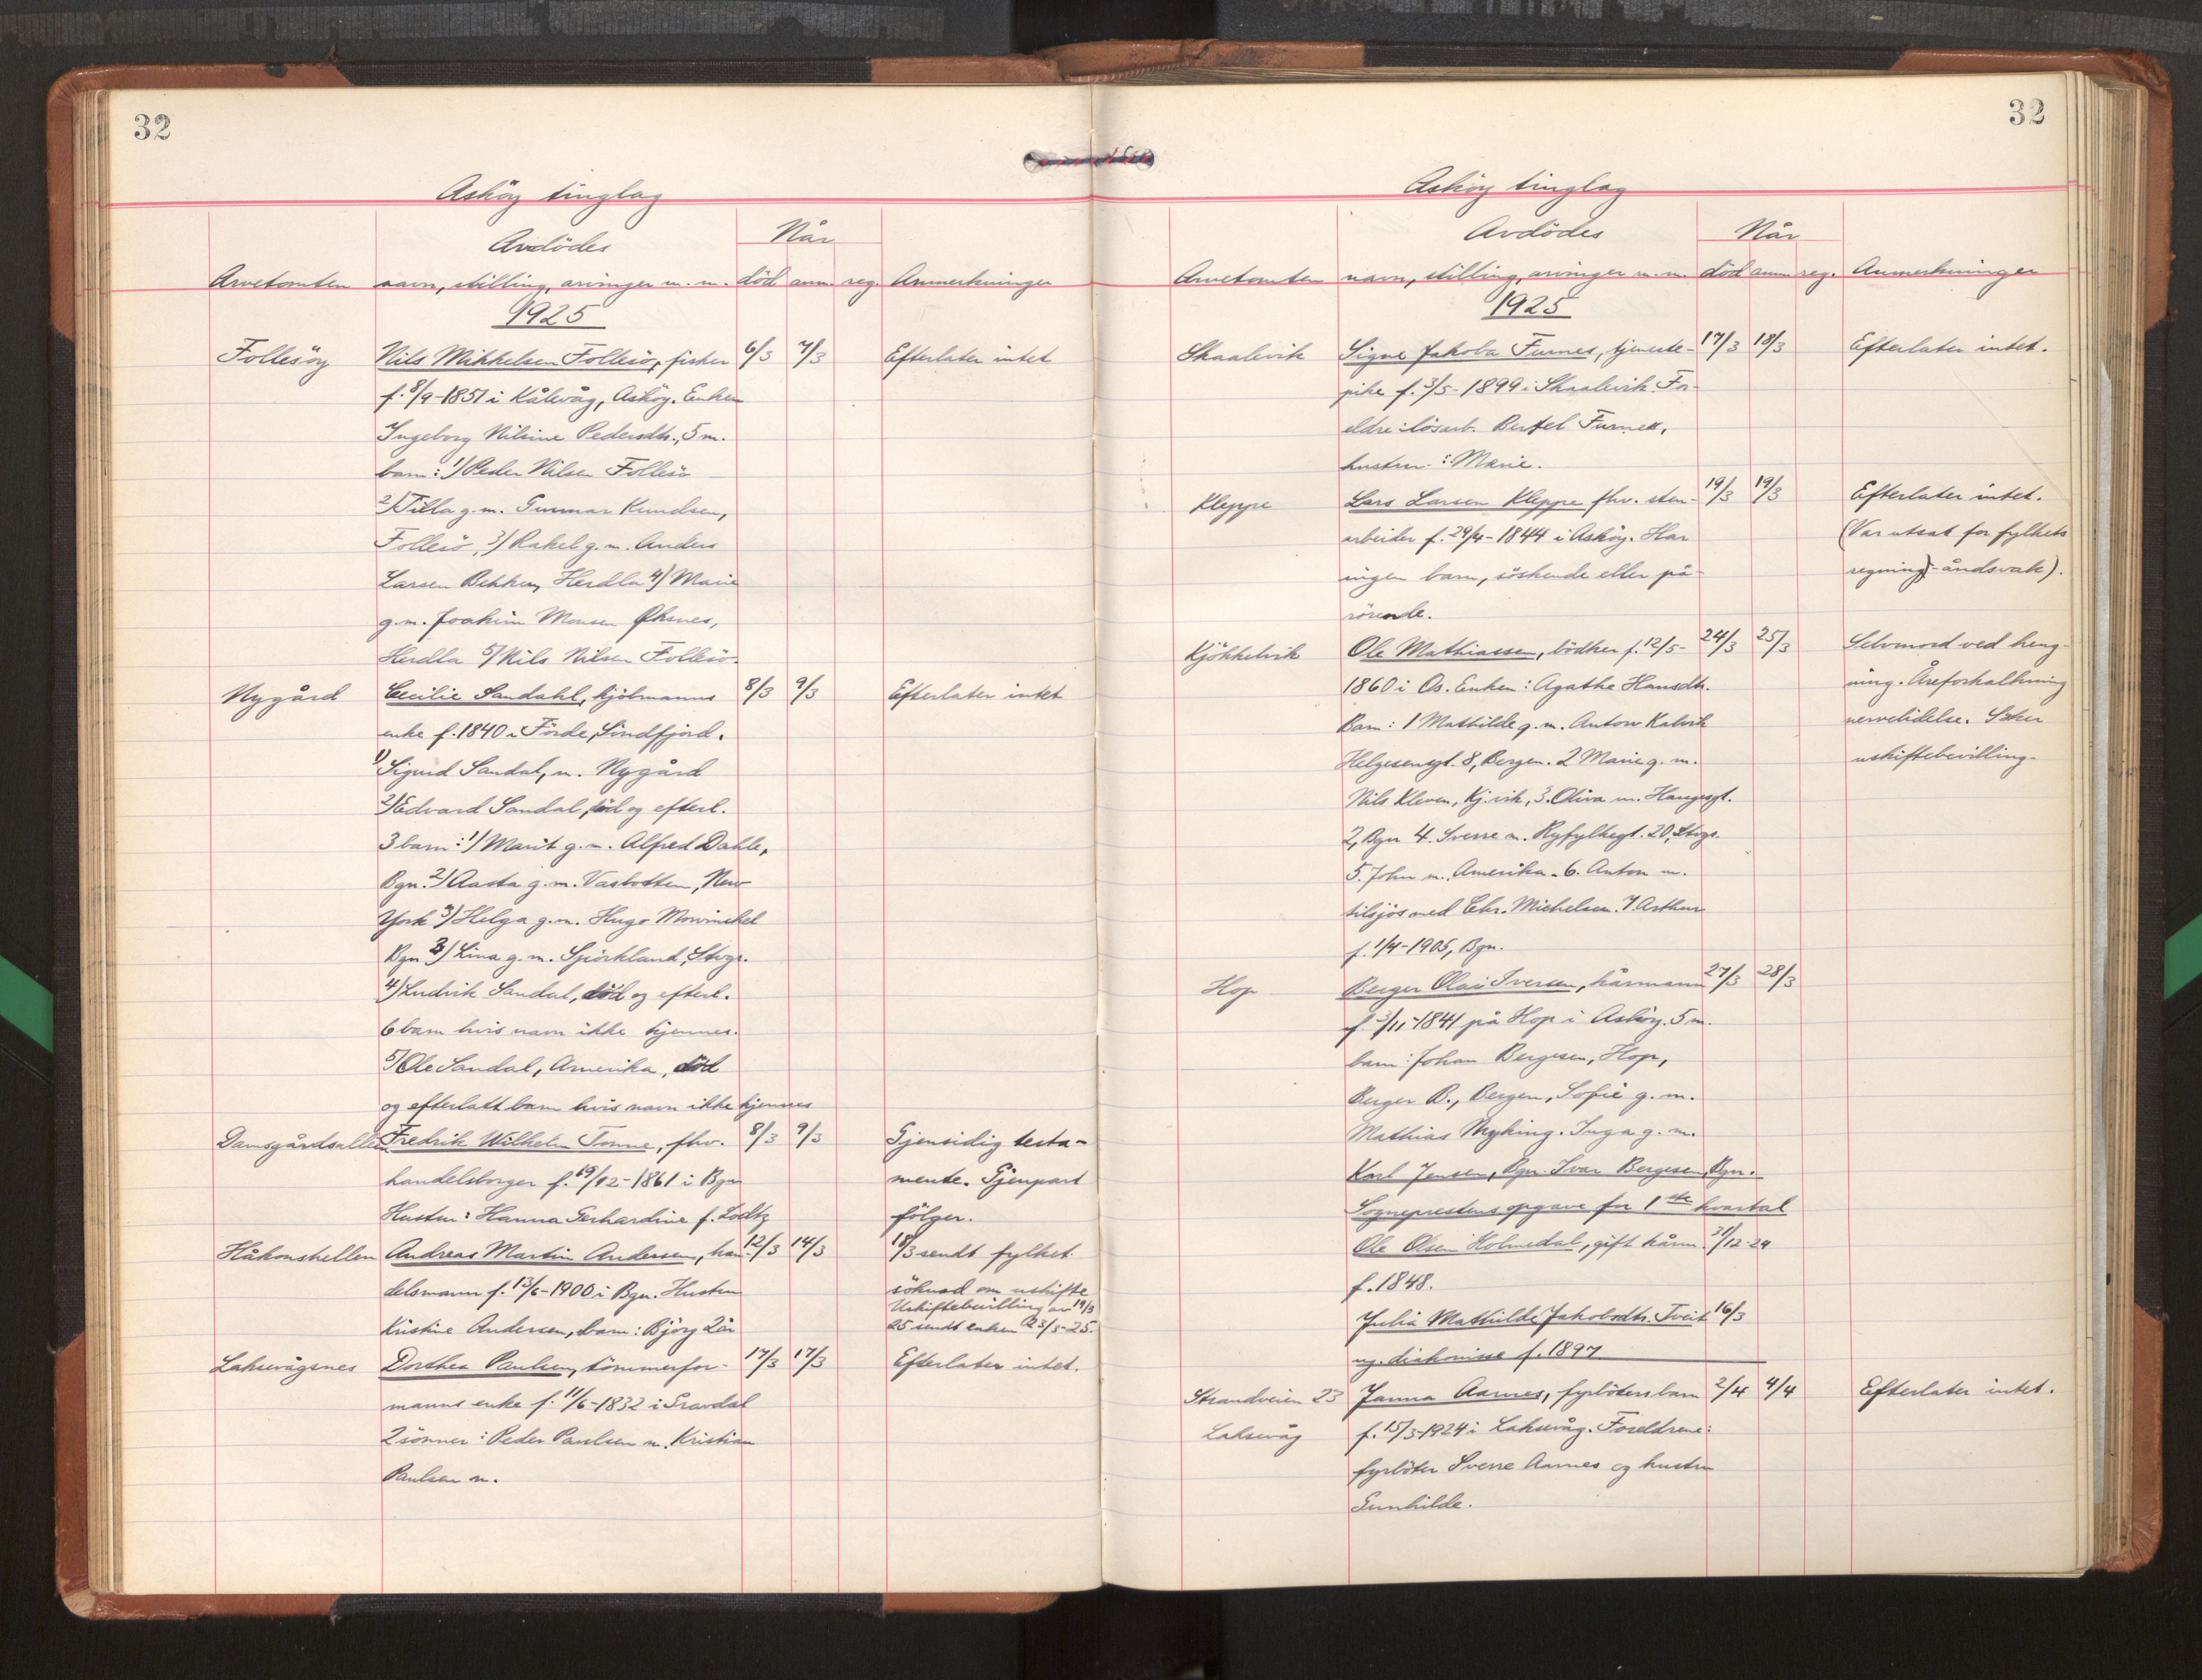 32
Asköy tinglag
Avdödes
Når
Arvetomten navn, stilling, arvinger m. m. död anm. reg. Anmerkninger
1925
Follesöy Nils Mikkelsen Follesö, fisker 6/3 7/3 Efterlater intet
f. 8/9-1851 i Kålevåg, Asköy. Enken
Ingeborg Nilsine Pedersdtr., 5 m.
barn: 1) Peder Nilsen Follesö
2) Tilla g. m. Gunnar Knudsen,
Follesö, 3) Rakel g. m. Anders
Larsen Bekken, Herdla 4) Marie
g. m. Joakim Monsen Øksnes,
Herdla 5) Nils Nilsen Follesö.
Nygård Cecilie Sandahl, kjölmanns 8/3 9/3 Efterlater intet
enke f. 1840 i Förde, Söndfjord.
1) Sigurd Sandal, m. Nygård
2) Edvard Sandal, död og efterl.
3 barn: 1) Marit g. m. Alfred Dahle,
Bgn. 2) Aasta g. m. Vasbotten, New
York 3) Helga g. m. Hugo Mowinckel
Bgn 3) Lina g. m. Spörkland, Stvgr.
4) Ludvik Sandal, död og efterl.
6 barn hvis navn ikke kjennes.
5) Ole Sandal, Amerika, död
og efterlatt barn hvis navn ikke kjennes
Damsgårdsalleen Fredrik Wilhelm Tonne, fhv. 8/3 9/3 Gjensidig testa-
handelsborger f. 19/12-1861 i Bgn mente. Gjenpart
Hustru: Hanna Gerhardine f. Lodtz fölger.
Håkonshellen Andreas Martin Andersen, han- 12/3 14/3 18/3 sendt fylket
delsmann f. 13/6-1900 i Bgn. Hustru söknad om uskifte
Uskiftebevilling av 19/3
Kristine Andersen, barn: Björg 2 år 25 sendt enken 23/3-25.
Laksevågsnes Dorthea Paulsen, tömmerfor- 17/3 17/3 Efterlater intet.
manns enke f. 11/6-1832 i Gravdal
2 sönner: Peder Paulsen m. Kristian
Paulsen m.
32
Asköy tinglag
Avdödes
Når
Arvetomten navn, stilling, arvinger m. m. död anm reg. Anmerkninger
1925
Skaalevik Signe Jakoba Furnes, tjeneste- 17/3 18/3 Efterlater intet.
pike f. 3/5-1899 i Skaalevik. For-
eldre: lösarb. Bertel Furnes,
hustru: Marie.
Kleppe Lars Larsen Kleppe fhv. sten- 19/3 19/3 Efterlater intet.
arbeider f. 29/4-1844 i Asköy. Har (Var utsat for fylkets
ingen barn, söskende eller på- regning - åndsvak).
rörende.
Kjökkelvik Ole Mathiassen, bödker f. 12/5- 24/3 25/3 Selvmord ved heng-
1860 i Os. Enken: Agathe Hansdtr. ning. Åreforkalkning
Barn: 1 Mathilde g. m. Anton Kalvik nervelidelse. Søker
Helgesensgt. 8, Bergen. 2 Marie g. m. uskiftebevilling.
Nils Kleven, Kj. vik, 3. Oliva m. Haugesgt.
2, Bgn 4. Sverre m. Ryfylkegt. 20, Stvgr.
5. John m. Amerika. 6. Anton m.
tilsjös med Chr. Michelsen. 7. Arthur
f. 1/4-1905, Bgn.
Hop Berger Olai Iversen, kårmann 27/3 28/3
f. 3/11-1841 på Hop i Asköy. 5 m.
barn: Johan Bergesen, Hop,
Berger B., Bergen, Sofie g. m.
Mathias Myking. Inga g. m.
Karl Jensen, Bgn. Ivar Bergesen, Bgn.
Sogneprestens opgave for 1ste kvartal
Ole Olsen Holmedal, gift kårm. 31/12-24
f. 1848.
Julia Mathilde Jakobsdtr. Tveit 16/3
ug. diakonisse f. 1897
Strandveien 23 Janna Aarnes, fyrböters barn 2/4 4/4 Efterlater intet.
Laksevåg f. 15/3-1924 i Laksevåg. Foreldrene:
fyrböter Sverre Aarnes og hustru
Gunhilde.